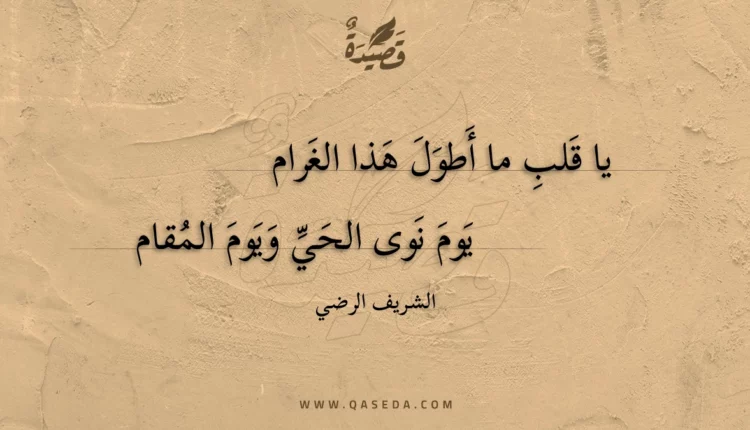 قَصِيدَةٌ
يا قَلبِ ما أَطوَلَ هَذا الغَرام
يَومَ نَوى الحَيِّ وَيَومَ المُقام
الشريف الرضي
WWW.QASEDA.COM